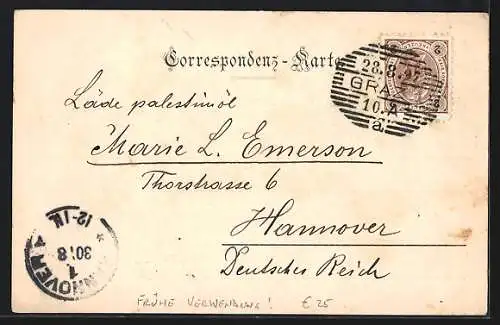 Correspondenz-Karte
28.8.97
GRAZ
10.
a.
Läde palestinöl
Marie L. Emerson
Thorstrasse 6
Hannover
Deutsches Reich
HANNOVER
1
30 8
12-1N.
FRÜHE VERWENDUNG! € 25